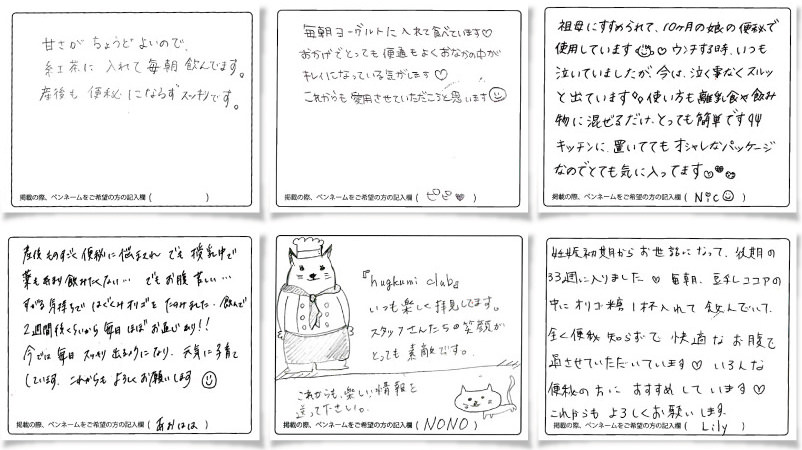 甘さが ちょうど よいので、
紅茶に 入れて 毎朝 飲んでます。
産後も 便秘 にならず スッキリです。
掲載の際、ペンネームをご希望の方の記入欄 ( )
毎朝 ヨーグルトに 入れて 食べています♡
おかげで とっても 便通もよく おなかの中が
キレイになっている 気がします♡
これからも 愛用させていただこうと 思います☺
掲載の際、ペンネームをご希望の方の記入欄 ( )
祖母にすすめられて、10ヶ月の娘の便秘で
使用しています♡ ウンチする時、いつも
泣いていましたが、今は、泣く事なくスルッ
と出ています 使い方も離乳食や飲み
物に混ぜるだけ、とっても簡単です
キッチンに、置いてても オシャレなパッケージ
なのでとても気に入ってます
掲載の際、ペンネームをご希望の方の記入欄 ( Nic☺ )
産後ものすごく 便秘に悩まされ でも 授乳中で
薬もあまり飲みたくない… でもお腹 苦しい…
すがる気持ちで はぐくみオリゴを たのみました。飲んで
2週間後くらいから 毎日 ほぼ お通じあり!!
今では 毎日 スッキリ 出るようになり、元気に子育て
しています。これからも よろしくお願いします ☺
掲載の際、ペンネームをご希望の方の記入欄 ( )
『hugkumi club』
いつも楽しく 拝見してます。
スタッフさんたちの 笑顔が
とっても 素敵です。
これからも、楽しい情報を
送って下さい。
掲載の際、ペンネームをご希望の方の記入欄 ( NONO )
妊娠初期から お世話になって、後期の
33週に入りました♡ 毎朝、豆乳ココアの
中に オリゴ糖 1杯入れて 飲んでいて、
全く便秘 知らずで 快適な お腹で
過させていただいています♡ いろんな
便秘の方に おすすめ しています♡
これからも よろしくお願いします。
掲載の際、ペンネームをご希望の方の記入欄 ( Lily )